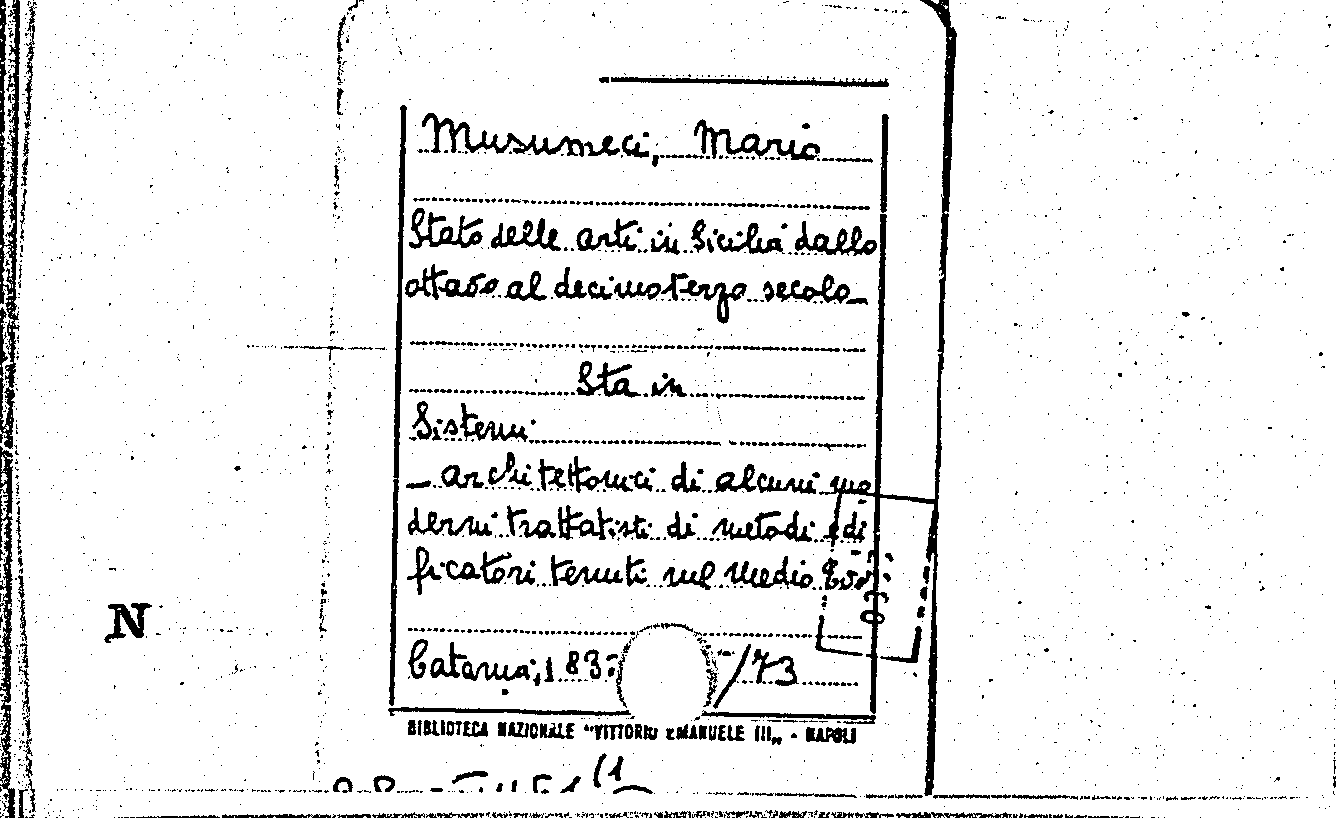 Musumeci, Mario
Stato delle arti in Sicilia dallo
ottavo al decimoterzo secolo_
Sta in
Sistemi
_ architettonici di alcuni mo
derni trattatisti di metodi edi
ficatori tenuti nel Medio Evo
N
Catania, 183 /73
BIBLIOTECA NAZIONALE "VITTORIO EMANUELE III„ - NAPOLI
(1